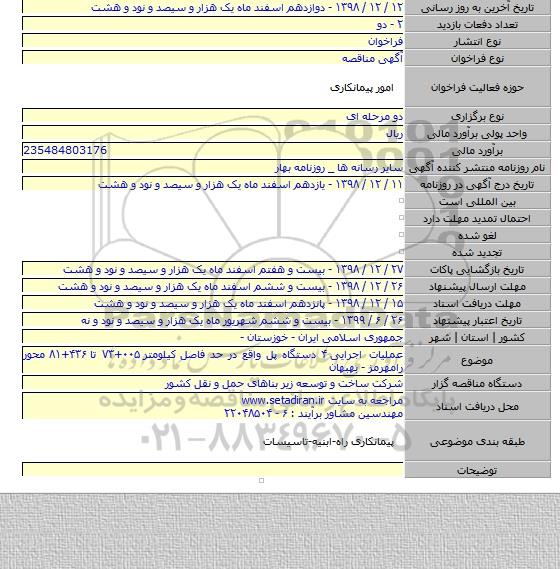 تاریخ آخرین به روز رسانی ۱۲ / ۱۲ / ۱۳۹۸ - دوازدهم اسفند ماه یک هزار و سیصد و نود و هشت
تعداد دفعات بازدید ۲ - دو
نوع انتشار فراخوان
نوع فراخوان آگهی مناقصه
حوزه فعالیت فراخوان امور پیمانکاری
نوع برگزاری دو مرحله ای
واحد پولی برآورد مالی ریال
برآورد مالی 235484803176
نام روزنامه منتشر کننده آگهی سایر رسانه ها _ روزنامه بهار
تاریخ درج آگهی در روزنامه ۱۱ / ۱۲ / ۱۳۹۸ - یازدهم اسفند ماه یک هزار و سیصد و نود و هشت
بین المللی است
احتمال تمدید مهلت دارد
لغو شده
تجدید شده
تاریخ بازگشایی پاکات ۲۷ / ۱۲ / ۱۳۹۸ - بیست و هفتم اسفند ماه یک هزار و سیصد و نود و هشت
مهلت ارسال پیشنهاد ۲۶ / ۱۲ / ۱۳۹۸ - بیست و ششم اسفند ماه یک هزار و سیصد و نود و هشت
مهلت دریافت اسناد ۱۵ / ۱۲ / ۱۳۹۸ - پانزدهم اسفند ماه یک هزار و سیصد و نود و هشت
تاریخ اعتبار پیشنهاد ۲۶ / ۶ / ۱۳۹۹ - بیست و ششم شهریور ماه یک هزار و سیصد و نود و نه
کشور | استان | شهر جمهوری اسلامی ایران - خوزستان -
موضوع عملیات اجرایی ۴ دستگاه پل واقع در حد فاصل کیلومتر ۰۰۵+۷۳ تا ۴۳۶+۸۱ محور
رامهرمز - بهبهان
دستگاه مناقصه گزار شرکت ساخت و توسعه زیر بناهای حمل و نقل کشور
محل دریافت اسناد مراجعه به سایت www.setadiran.ir
مهندسین مشاور برآیند : ۶ - ۲۲۰۴۸۵۰۴
طبقه بندی موضوعی پیمانکاری راه-ابنیه-تاسیسات
توضیحات
۰۲۱-۸۸۳۴۹۶۷۰-۵